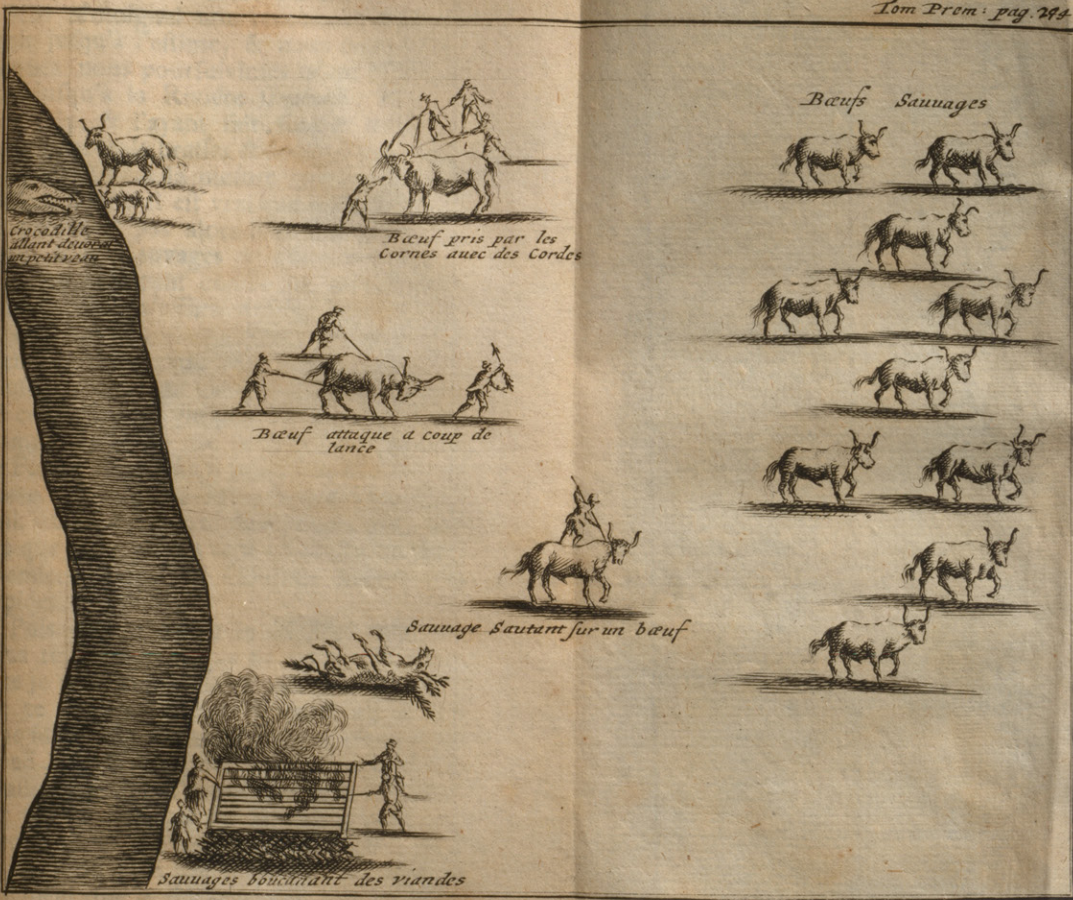 Tom Prem: pag. 294
Bœufs Sauvages
Crocodille
allant devorer
un petit veau
Bœuf pris par les
Cornes avec des Cordes
Bœuf attaque a coup de
lance
Sauvage Sautant sur un bœuf
Sauvages boucanant des viandes